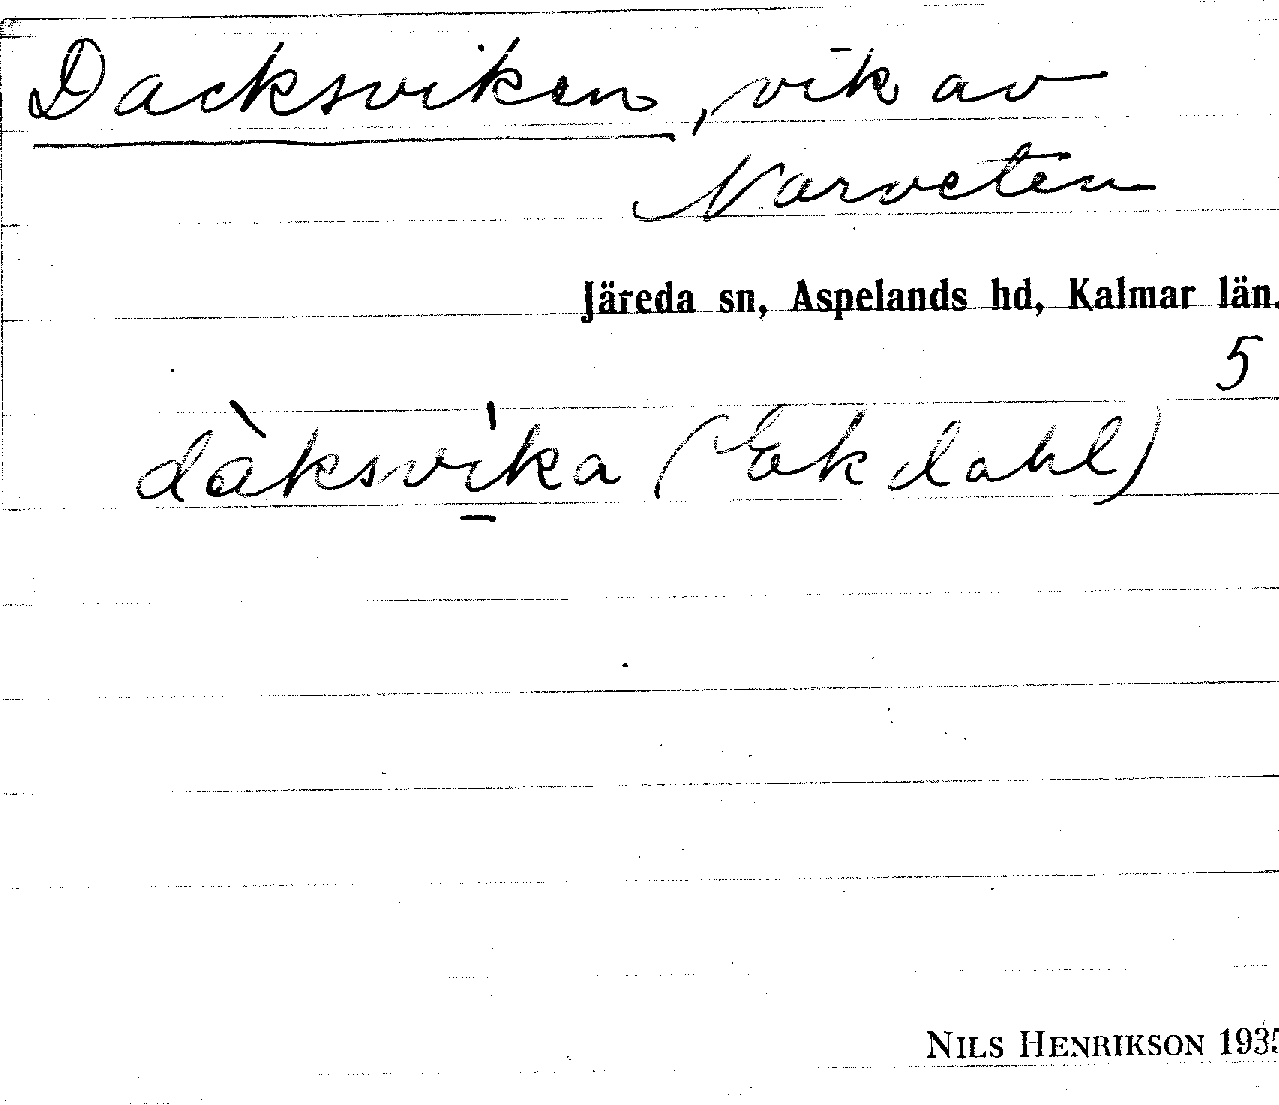 Dacksviken, vik av
Narveten
Järeda sn, Aspelands hd, Kalmar län.
5
dàksvi̱ka (Ekdahl)
NILS HENRIKSON 193